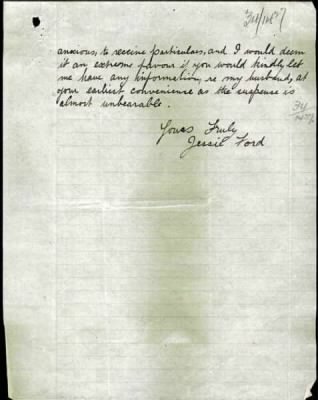 anxious, to receive particulars, and I would deem
it an extreme favour if you would kindly let
me have any information, re my husband, at
your earliest convenience as the suspense is
almost unbearable.
Yours Truly
Jessie Ford